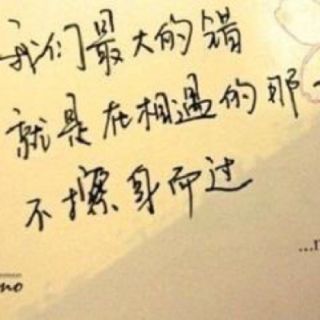 我们最大的错
就是在相遇的那一
不擦身而过
...n
no